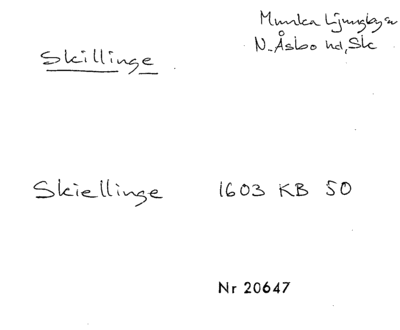 Munka Ljungby sn
Skillinge
N. Åsbo hd, Sk
Skiellinge 1603 KB 50
Nr 20647